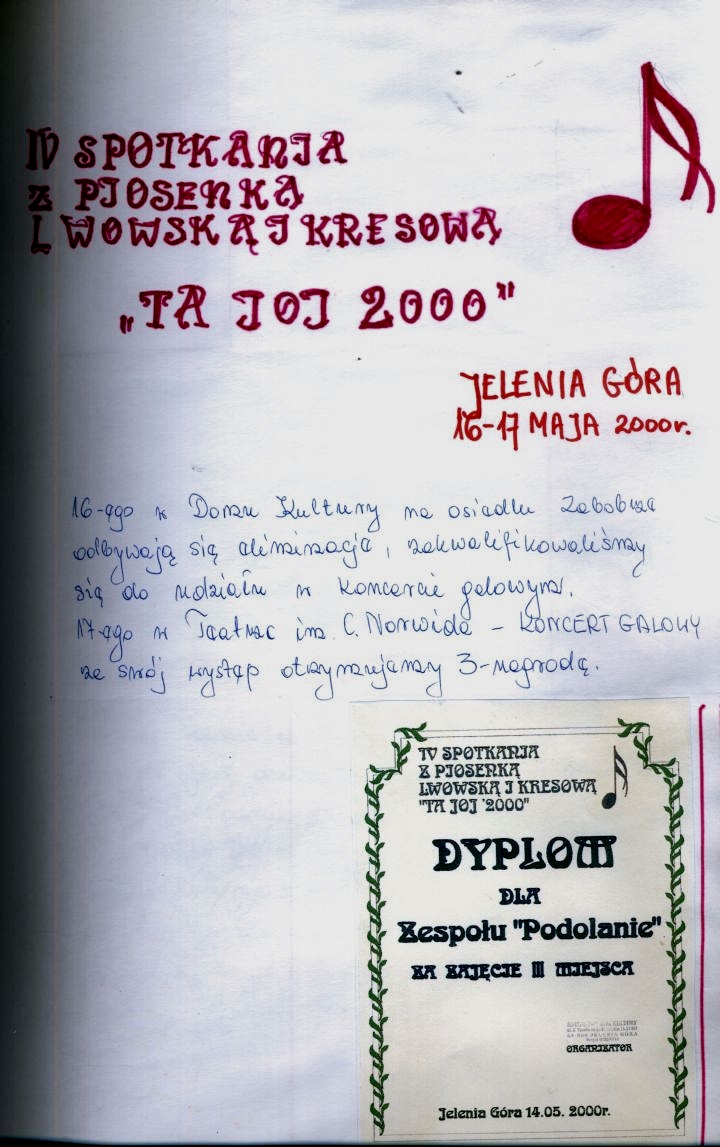 IV SPOTKANIA
Z PIOSENKĄ
LWOWSKĄ I KRESOWĄ
„TA JOJ 2000"
JELENIA GÓRA
16-17 MAJA 2000r.
16-ego w Domu Kultury na osiedlu Zabobrze
odbywają się eliminacje, zakwalifikowaliśmy
się do udziału w koncercie galowym.
17-ego w Teatrze im. C. Norwida – KONCERT GALOWY
za swój występ otrzymujemy 3-nagrodę.
IV SPOTKANIA
Z PIOSENKĄ
LWOWSKĄ I KRESOWĄ
"TA JOJ '2000"
DYPLOM
DLA
Zespołu "Podolanie"
ZA ZAJĘCIE III MIEJSCA
ORGANIZATOR
Jelenia Góra 14.05. 2000r.